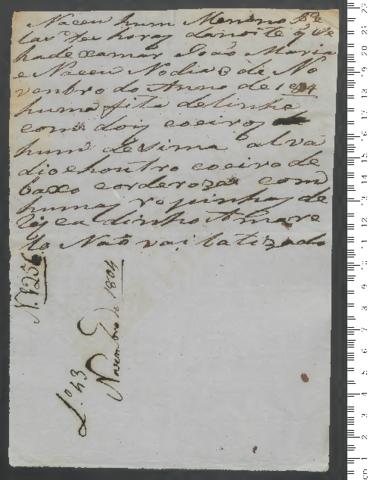 Naceu hum Menino pe
las des horas danoite q̃ se
hade xamar João Maria
e Naceu Nodia 3 de No
venbro do Anno de 1804
huma fita de linho
com doiz coeiros
hum desima alva
dio e houtro coeiro de
baxo corderoza com
humas ropinhas de
Amare
lo Não vai batizado
N. 1256
Novembro de 1804
L.o 43